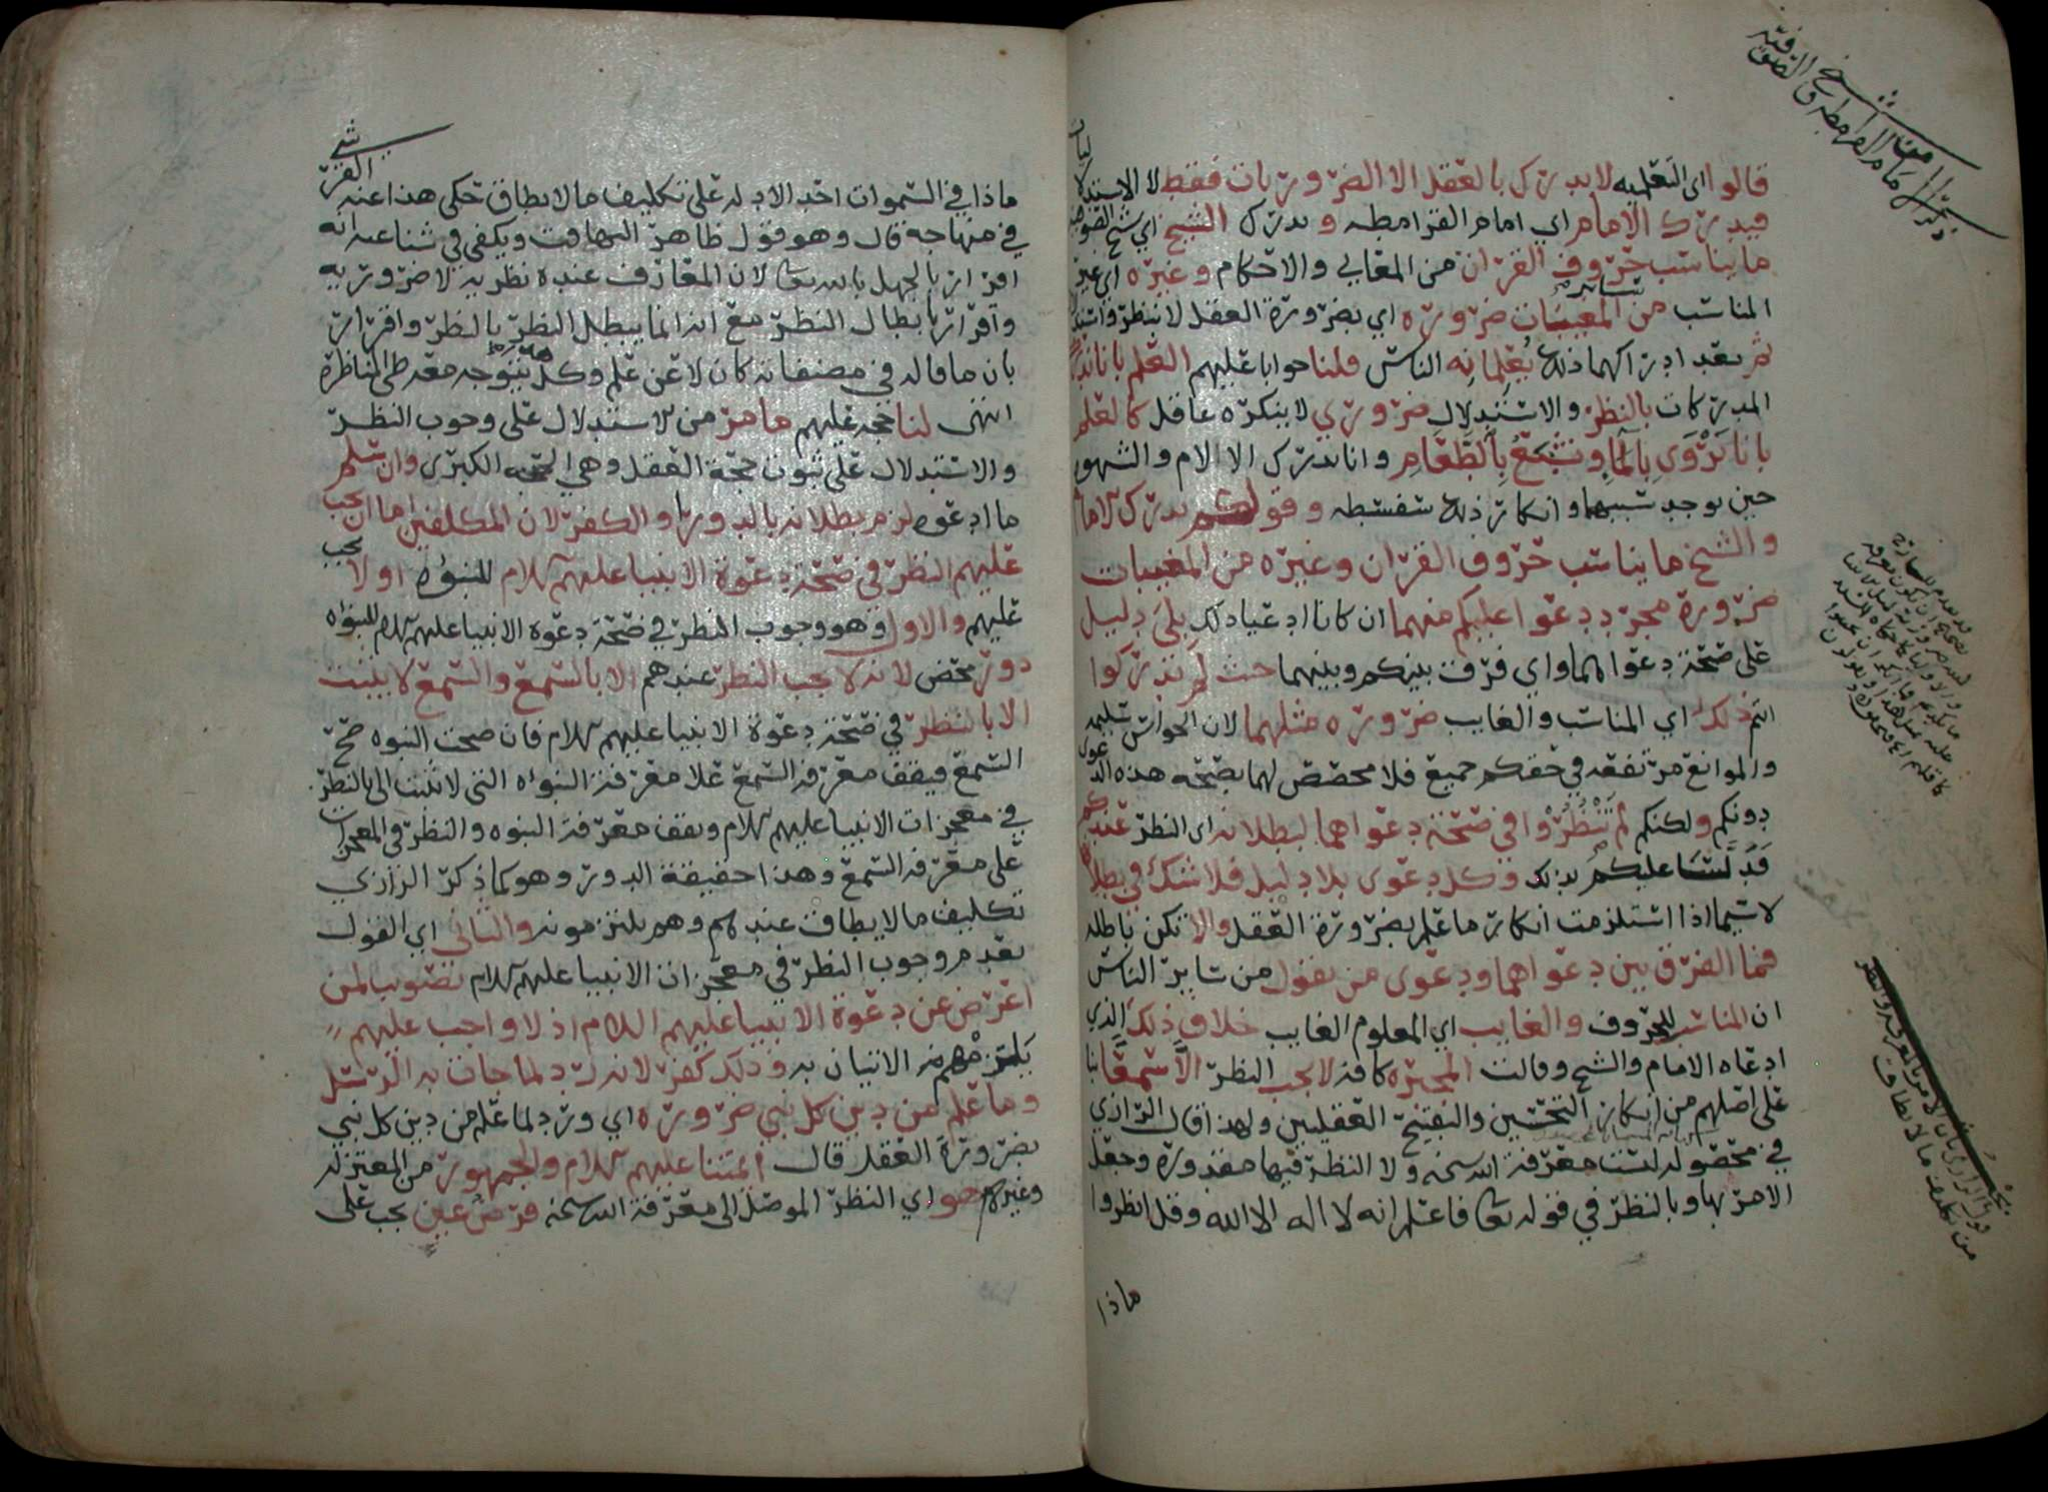 قالوا اي التعليميه لا يدرك بالعقل الا الضروريات فقط لا الاستدلا
ليات
فيدرك الامام اي امام القرامطه ويدرك الشيخ اي شيخ الصوفيه
ما يناسب حروف القرآن من المعاني والاحكام وغيره اي غير
المناسب من سائر المغيبات ضروره اي بضرورة العقل لا بنظر واستدلال
ثم بعد ادراكهما ذلك يُعلمانِه الناس قلنا جوابا عليهم العلم بانا ندرك
المدركات بالنظر والاستدلال ضروري لا ينكره عاقل كالعلم
بانا نَرْوَى بالماء ونشبَعُ بالطَّعام وانا ندرك الالام والشهوه
حين يوجد سببهما وانكار ذلك سفسطه وقولكم يدرك الامام
والشيخ ما يناسب حروف القرآن وغيره من المغيبات
ضرورة مجرد دعوا عليكم منهما ان كانا ادعيا ذلك بلى دليل
على صحة دعواهما واي فرق بينكم وبينهما حيث لم تدركوا
انتم ذلك اي المناسب والغايب ضروره مثلهما لان الحواس سليمه
والموانع مرتفعه في حقكم جميع فلا مخصص لهما بصحه هذه الدعوى
دونكم ولكنكم لم تَنْظُرُوا في صحة دعواهما لبطلانه اي النظر عندكم
فدلسا عليكم بذلك وكل دعوى بلا دليل فلا شك في بطلانها
لا سيما اذا استلزمت انكار ما علم بضرورة العقل والا تكن باطله
فما الفرق بين دعواهما ودعوى من يقول من سائر الناس
ان المناسب للحروف والغايب اي المعلوم الغايب خلاف ذلك الذي
ادعاه الامام والشيخ وقالت المجبره كافه لا يجب النظر الا سمعًا بنا
على اصلهم من انكار التحسين والتقبيح العقليين ولهذا قال الرازي
في محصوله ليست معرفة الله سبحنه ولا النظر فيها مقدوره وجعل
الامر بها وبالنظر في قوله تعالى فاعلم انه لا اله الا الله وقل انظروا
ماذا
ماذا في السموات احد الادله على تكليف ما لا يطاق حكى هذا عنه القرشي
في منهاجه قال وهو قول ظاهر التهافت ويكفي في شناعته انه
اقرار بالجهل بالله تعالى لان المعارف عنده نظريه لا ضروريه
واقرار بابطال النظر مع انه انما يبطل النظر بالنظر واقرار
بان ما قاله في مصنفاته كان لا عن علم وكل هذه تتوجه معه طي المناظرة
انتهى لنا حجه عليهم ما مر من الاستدلال على وجوب النظر
والاستدلال على ثبوت حجة العقل وهي الحجه الكبرى وان سلم
ما ادعوه لزم بطلانه بالدور او الكفر لان المكلفين اما ان يجب
عليهم النظر في صحة دعوة الانبيا عليهم السلام للنبوه او لا يجب
عليهم والاول وهو وجوب النظر في صحة دعوة الانبيا عليهم السلام للنبوه
دور محض لانه لا يجب النظر عندهم الا بالسمع والسمع لا يثبت
الا بالنظر في صحة دعوة الانبيا عليهم السلام فان صحت النبوه صح
السمع فيقف معرفة السمع علا معرفة النبوه التي لا تثبت الى بالنظر
في معجزات الانبيا عليهم السلام ويقف معرفة النبوه والنظر في المعجزات
على معرفة السمع وهذا حقيقة الدور وهو كما ذكر الرازي
تكليف ما لا يطاق عندهم وهم يلتزمونه والثاني اي القول
بعدم وجوب النظر في معجزات الانبيا عليهم السلام تصويب لمن
اعرض عن دعوة الانبيا عليهم السلام اذ لا واجب عليهم
يلتزمهم الاتيان به وذلك كفر لانه رد لما جات به الرسل
وما علم من دين كل نبي ضروره اي ورد لما علم من دين كل نبي
بضرورة العقل قال ائمتنا عليهم السلام والجمهور من المعتزله
وغيرهم هو اي النظر الموصل الى معرفة الله سبحنه فرض عين يجب على